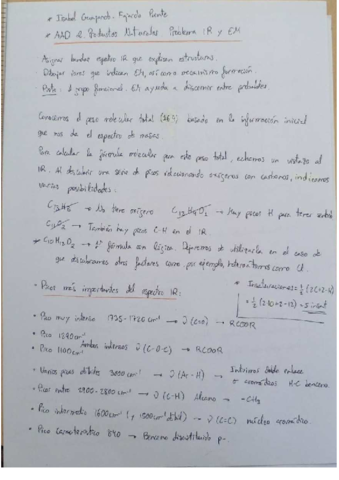 * Isabel
* AAD 2 Productos Naturales Problema IR y EM
Asignar bandas espectro IR que explican estructuras.
Dibujar iones que indican EM, así como mecanismo formación
Pista: 1 grupo funcional. EM ayuda a discernir entre probables
Conocemos el peso molecular total basado en la información inicial
que nos da el espectro de masas.
Para calcular la fórmula molecular para este peso total, echamos un vistazo al
IR. Al descubrir una serie de picos relacionando oxígenos con carbonos, indicamos
varias posibilidades.
No tiene oxígeno Hay pocos H para tener sentido
También hay pico C-H en el IR
1ª fórmula con lógica. Disponemos de en el caso de
que descubramos otros factores como, por ejemplo, heteroátomos como Cl.
* Insaturaciones = 1/2 (2C+2-H)
= 5 insat
* Picos más importantes del espectro IR:
• Pico muy intenso 1735-1720 cm⁻¹ → ν (C=O) → RCOOR
• Pico
• Pico 1100 cm⁻¹ Ambos intensos ν (C-O-C) → RCOOR
• Varios picos debajo 3000 cm⁻¹ → ν (Ar-H) → doble enlace
o aromáticos H-C benceno
• Picos entre 2900-2800 cm⁻¹ → ν (C-H) Alcano → -CH₃
• Pico intermedio 1600 cm⁻¹ (y 1500 cm⁻¹ ) → ν (C=C) núcleo aromático.
• Pico característico 840 → Benceno disustituido p-